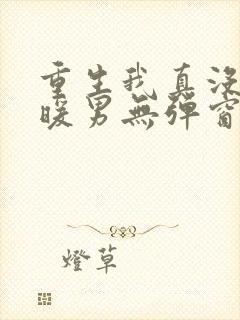 重生我真沒
暖男無彈窗
燈草